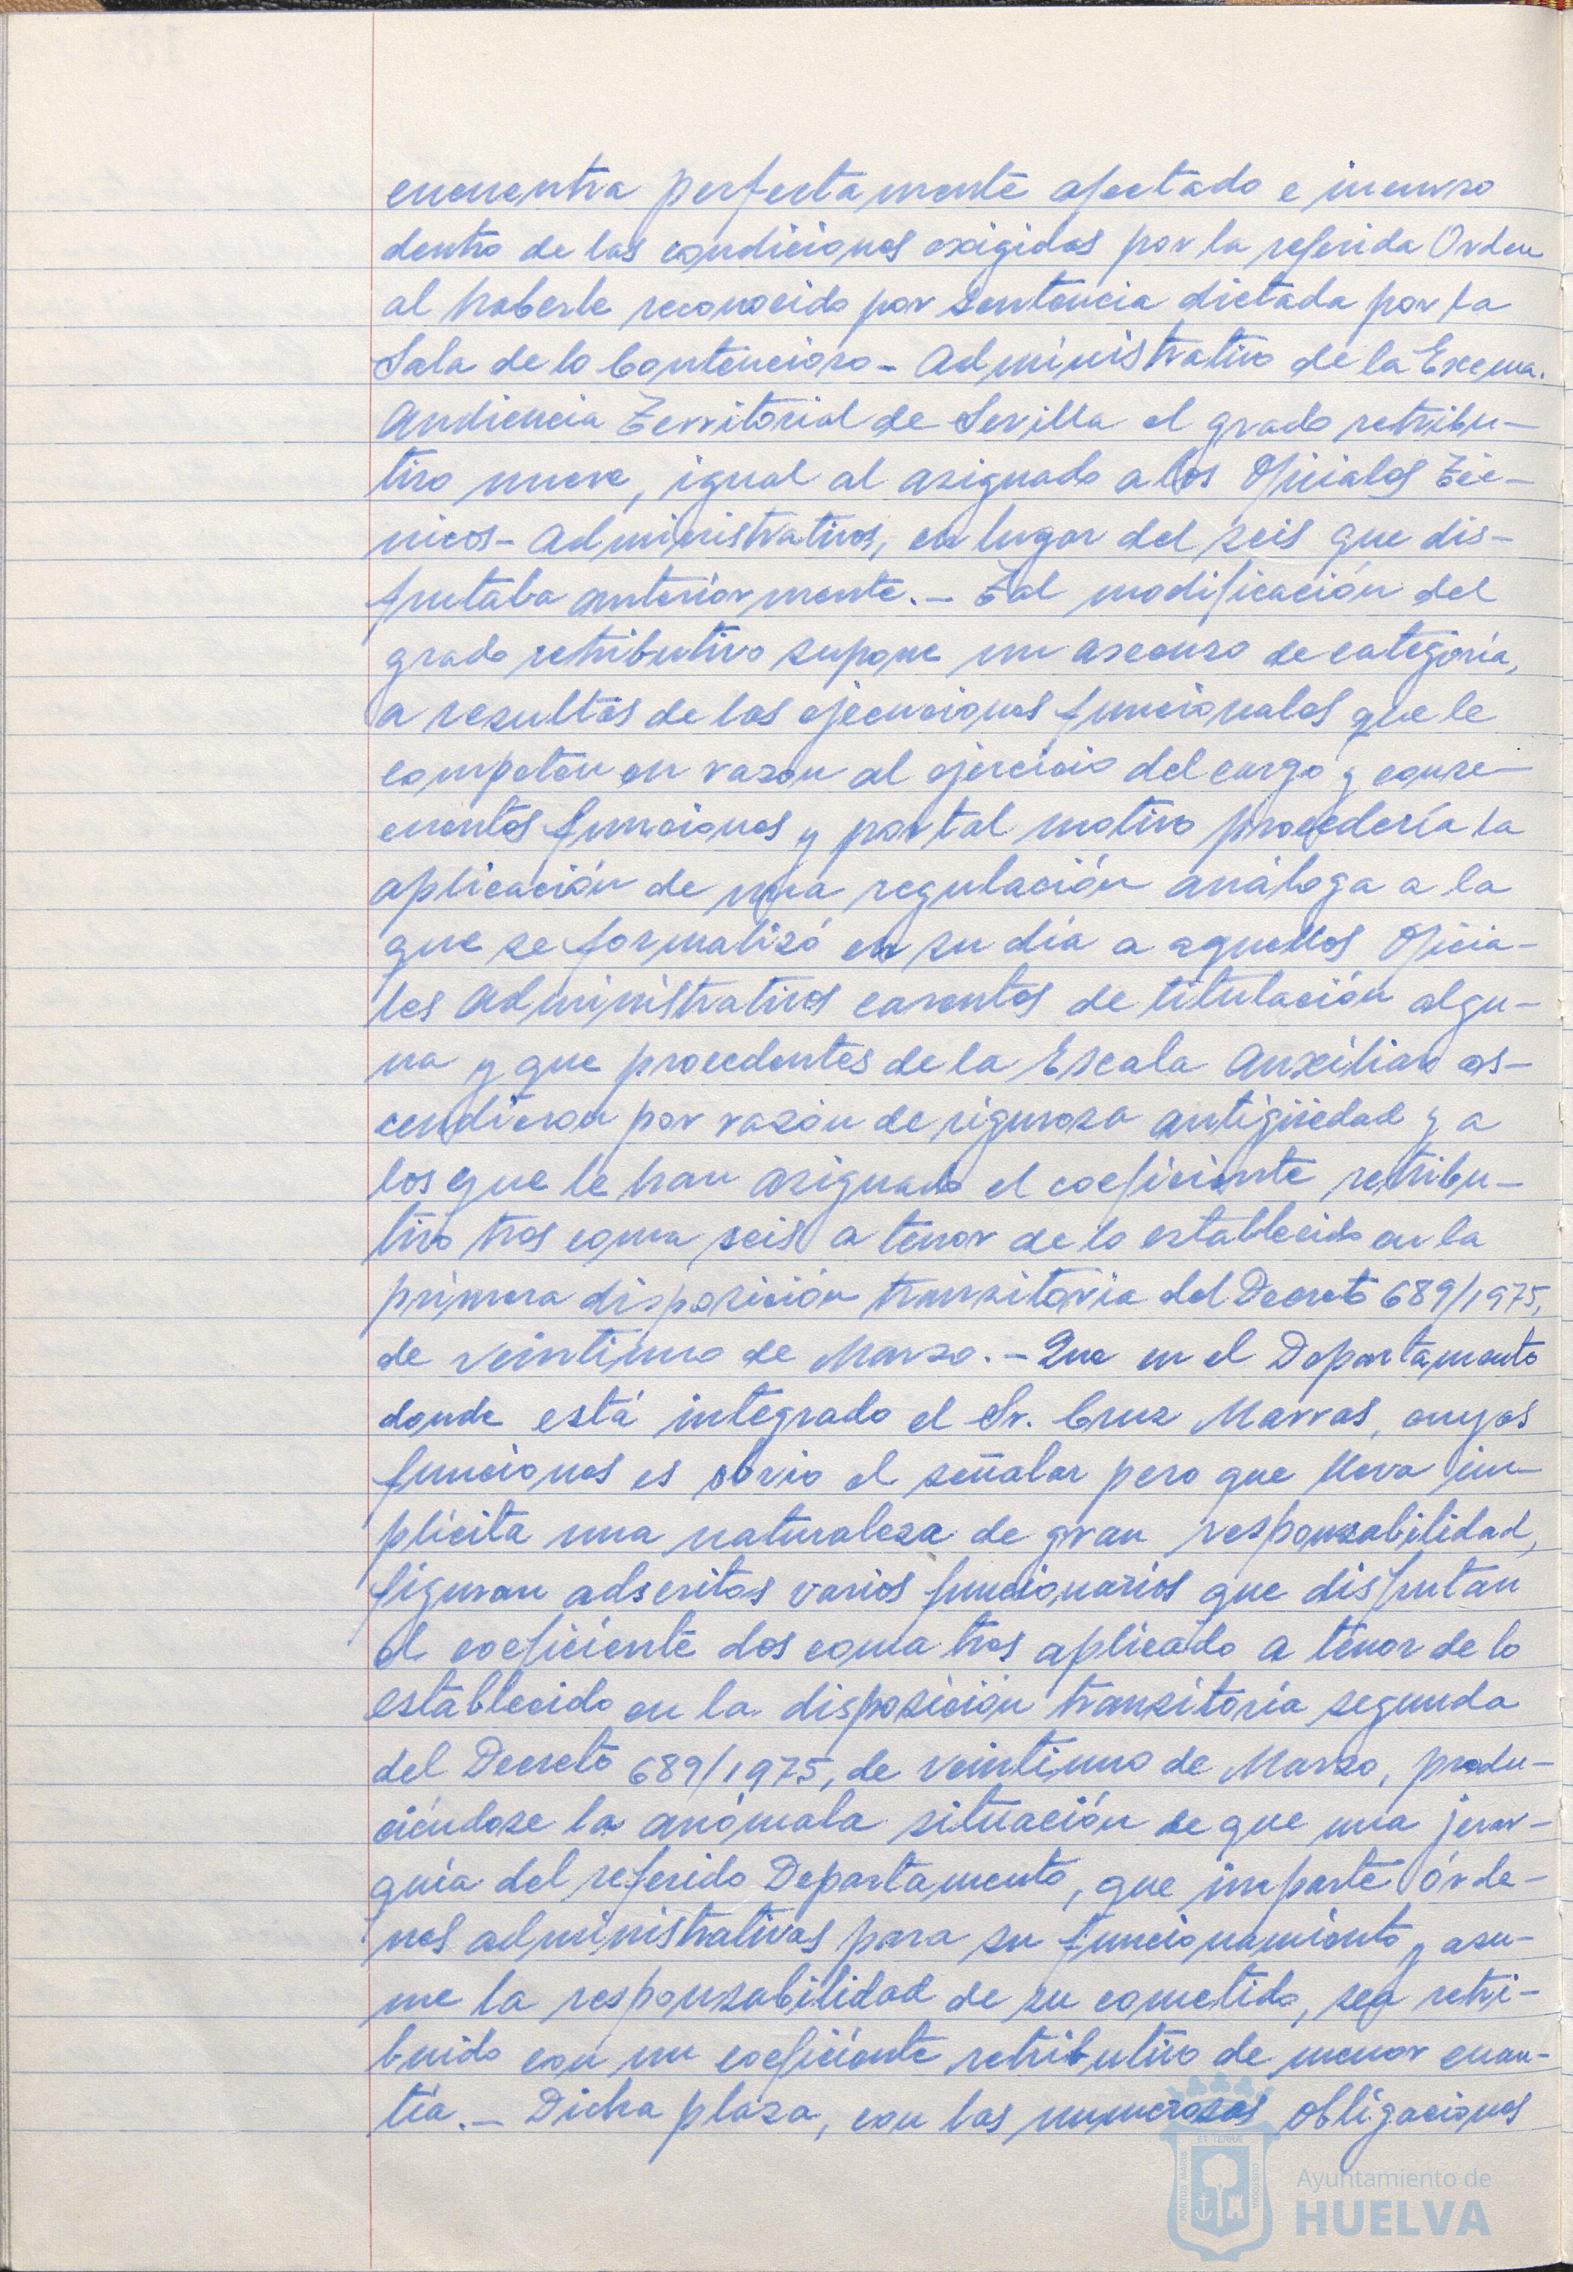 encuentra perfectamente afectado e incurso
dentro de las condiciones exigidas por la referida Orden
al haberle reconocido por sentencia dictada por la
Sala de lo Contencioso - Administrativo de la Excma.
Audiencia Territorial de Sevilla el grado retribu-
tivo nueve, igual al asignado a los Oficiales Téc-
nicos - Administrativos, en lugar del seis que dis-
frutaba anteriormente. - Tal modificación del
grado retributivo supone un ascenso de categoría,
a resultas de las ejecuciones funcionales que le
competen en razon al ejercicio del cargo y conse-
cuentes funciones y por tal motivo procedería la
aplicación de una regulación análoga a la
que se formalizó en su día a aquellos Oficia-
les Administrativos carentes de titulación algu-
na y que procedentes de la Escala Auxiliar as-
cendieron por razón de rigurosa antigüedad y a
los que le han asignado el coeficiente retribu-
tivo tres coma seis a tenor de lo establecido en la
primera disposición transitoria del Decreto 689/1975,
de veintiuno de Marzo. - Que en el Departamento
donde está integrado el Sr. Cruz Marras, cuyas
funciones es obvio el señalar pero que lleva im-
plícita una naturaleza de gran responsabilidad,
figuran adscritos varios funcionarios que disfrutan
el coeficiente dos coma tres aplicado a tenor de lo
establecido en la disposición transitoria segunda
del Decreto 689/1975, de veintiuno de Marzo, produ-
ciéndose la anómala situación de que una jerar-
quía del referido Departamento, que imparte órde-
nes administrativas para su funcionamiento y asu-
me la responsabilidad de su cometido, sea retri-
buido con un coeficiente retributivo de menor cuan-
tía. - Dicha plaza, con las numerosas obligaciones
PORTUS MARIS ET TERRAE CUSTODIA
Ayuntamiento de
HUELVA